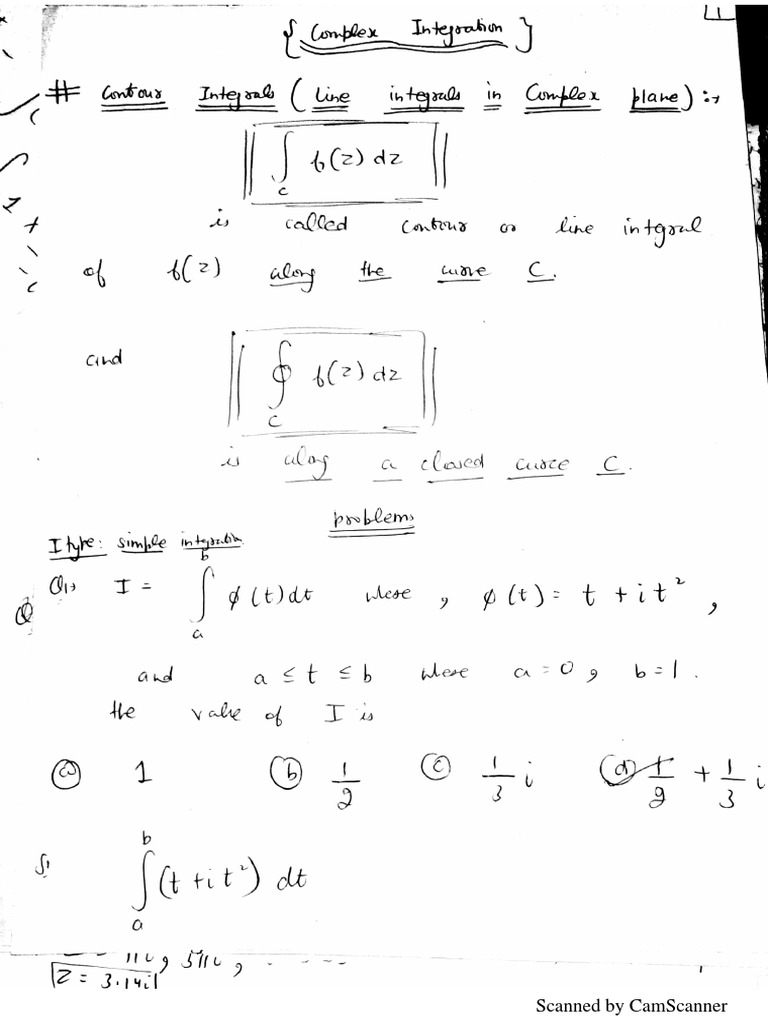 1
{ Complex Integration }
# Contour Integrals ( Line integrals in Complex plane ) :→
∫_C f(z) dz
is called contour or line integral
of f(z) along the curve C.
and
∮_C f(z) dz
is along a closed curve C.
problems
I type: simple integration
Q1→ I = ∫_a^b ϕ(t)dt where , ϕ(t) = t + it² ,
Q
and a ≤ t ≤ b where a = 0 , b = 1 .
the value of I is
(a) 1 (b) 1/2 (c) 1/3 i (d) 1/2 + 1/3 i
∫_a^b (t + it²) dt
z = 3.14i
Scanned by CamScanner